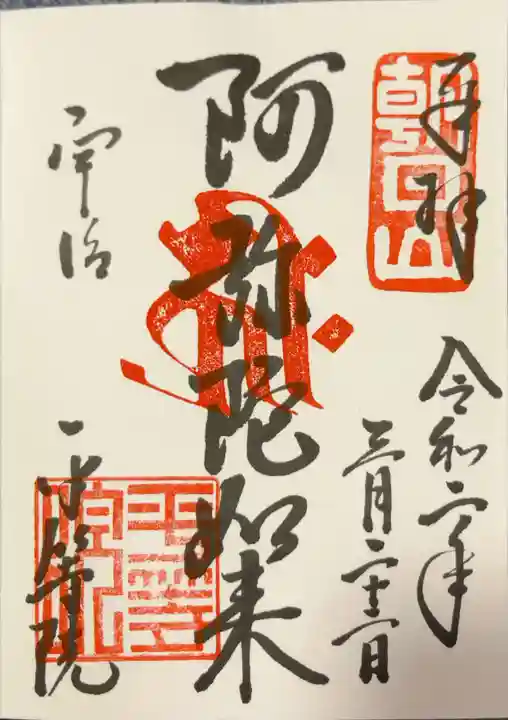 奉拝
朝日山
令和二年
三月二十二日
阿弥陀如来
宇治
平等院
平等院